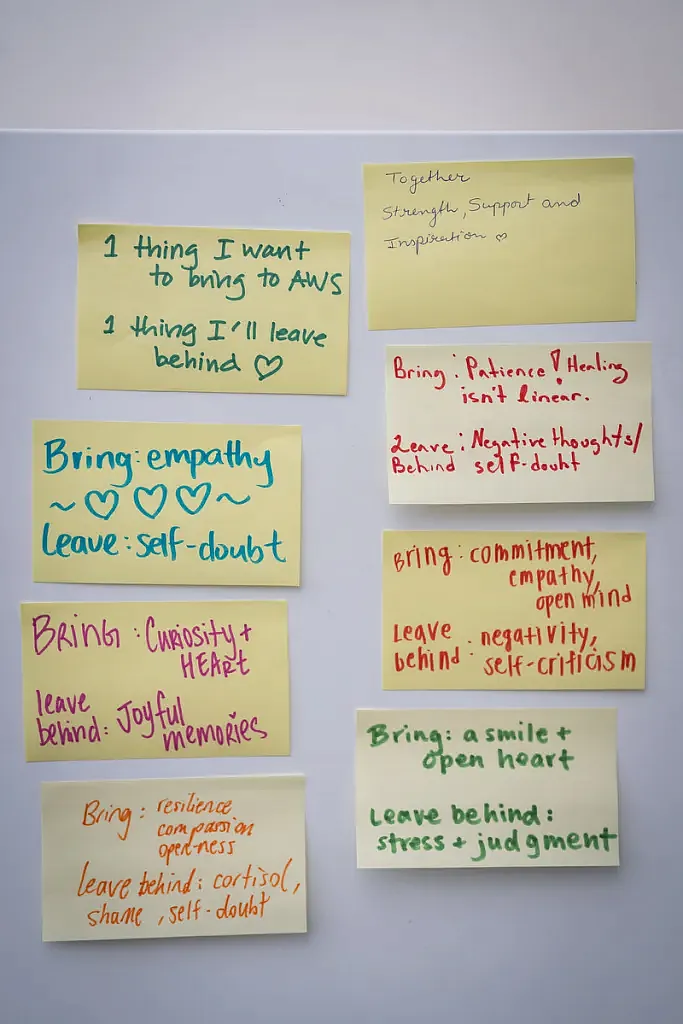 1 thing I want
to bring to AWS
1 thing I'll leave
behind ♡
Bring: empathy
~ ♡ ♡ ♡ ~
Leave: self-doubt
BRING: Curiosity +
HEArt
leave
behind: Joyful
memories
Bring: resilience
compassion
openness
leave behind: cortisol,
shame, self-doubt
Together
Strength, Support and
Inspiration ♡
Bring: Patience! Healing
isn't linear.
Leave: Negative thoughts/
Behind self-doubt
Bring: commitment,
empathy,
open mind
Leave
behind: negativity,
self-criticism
Bring: a smile +
open heart
Leave behind:
stress + judgment